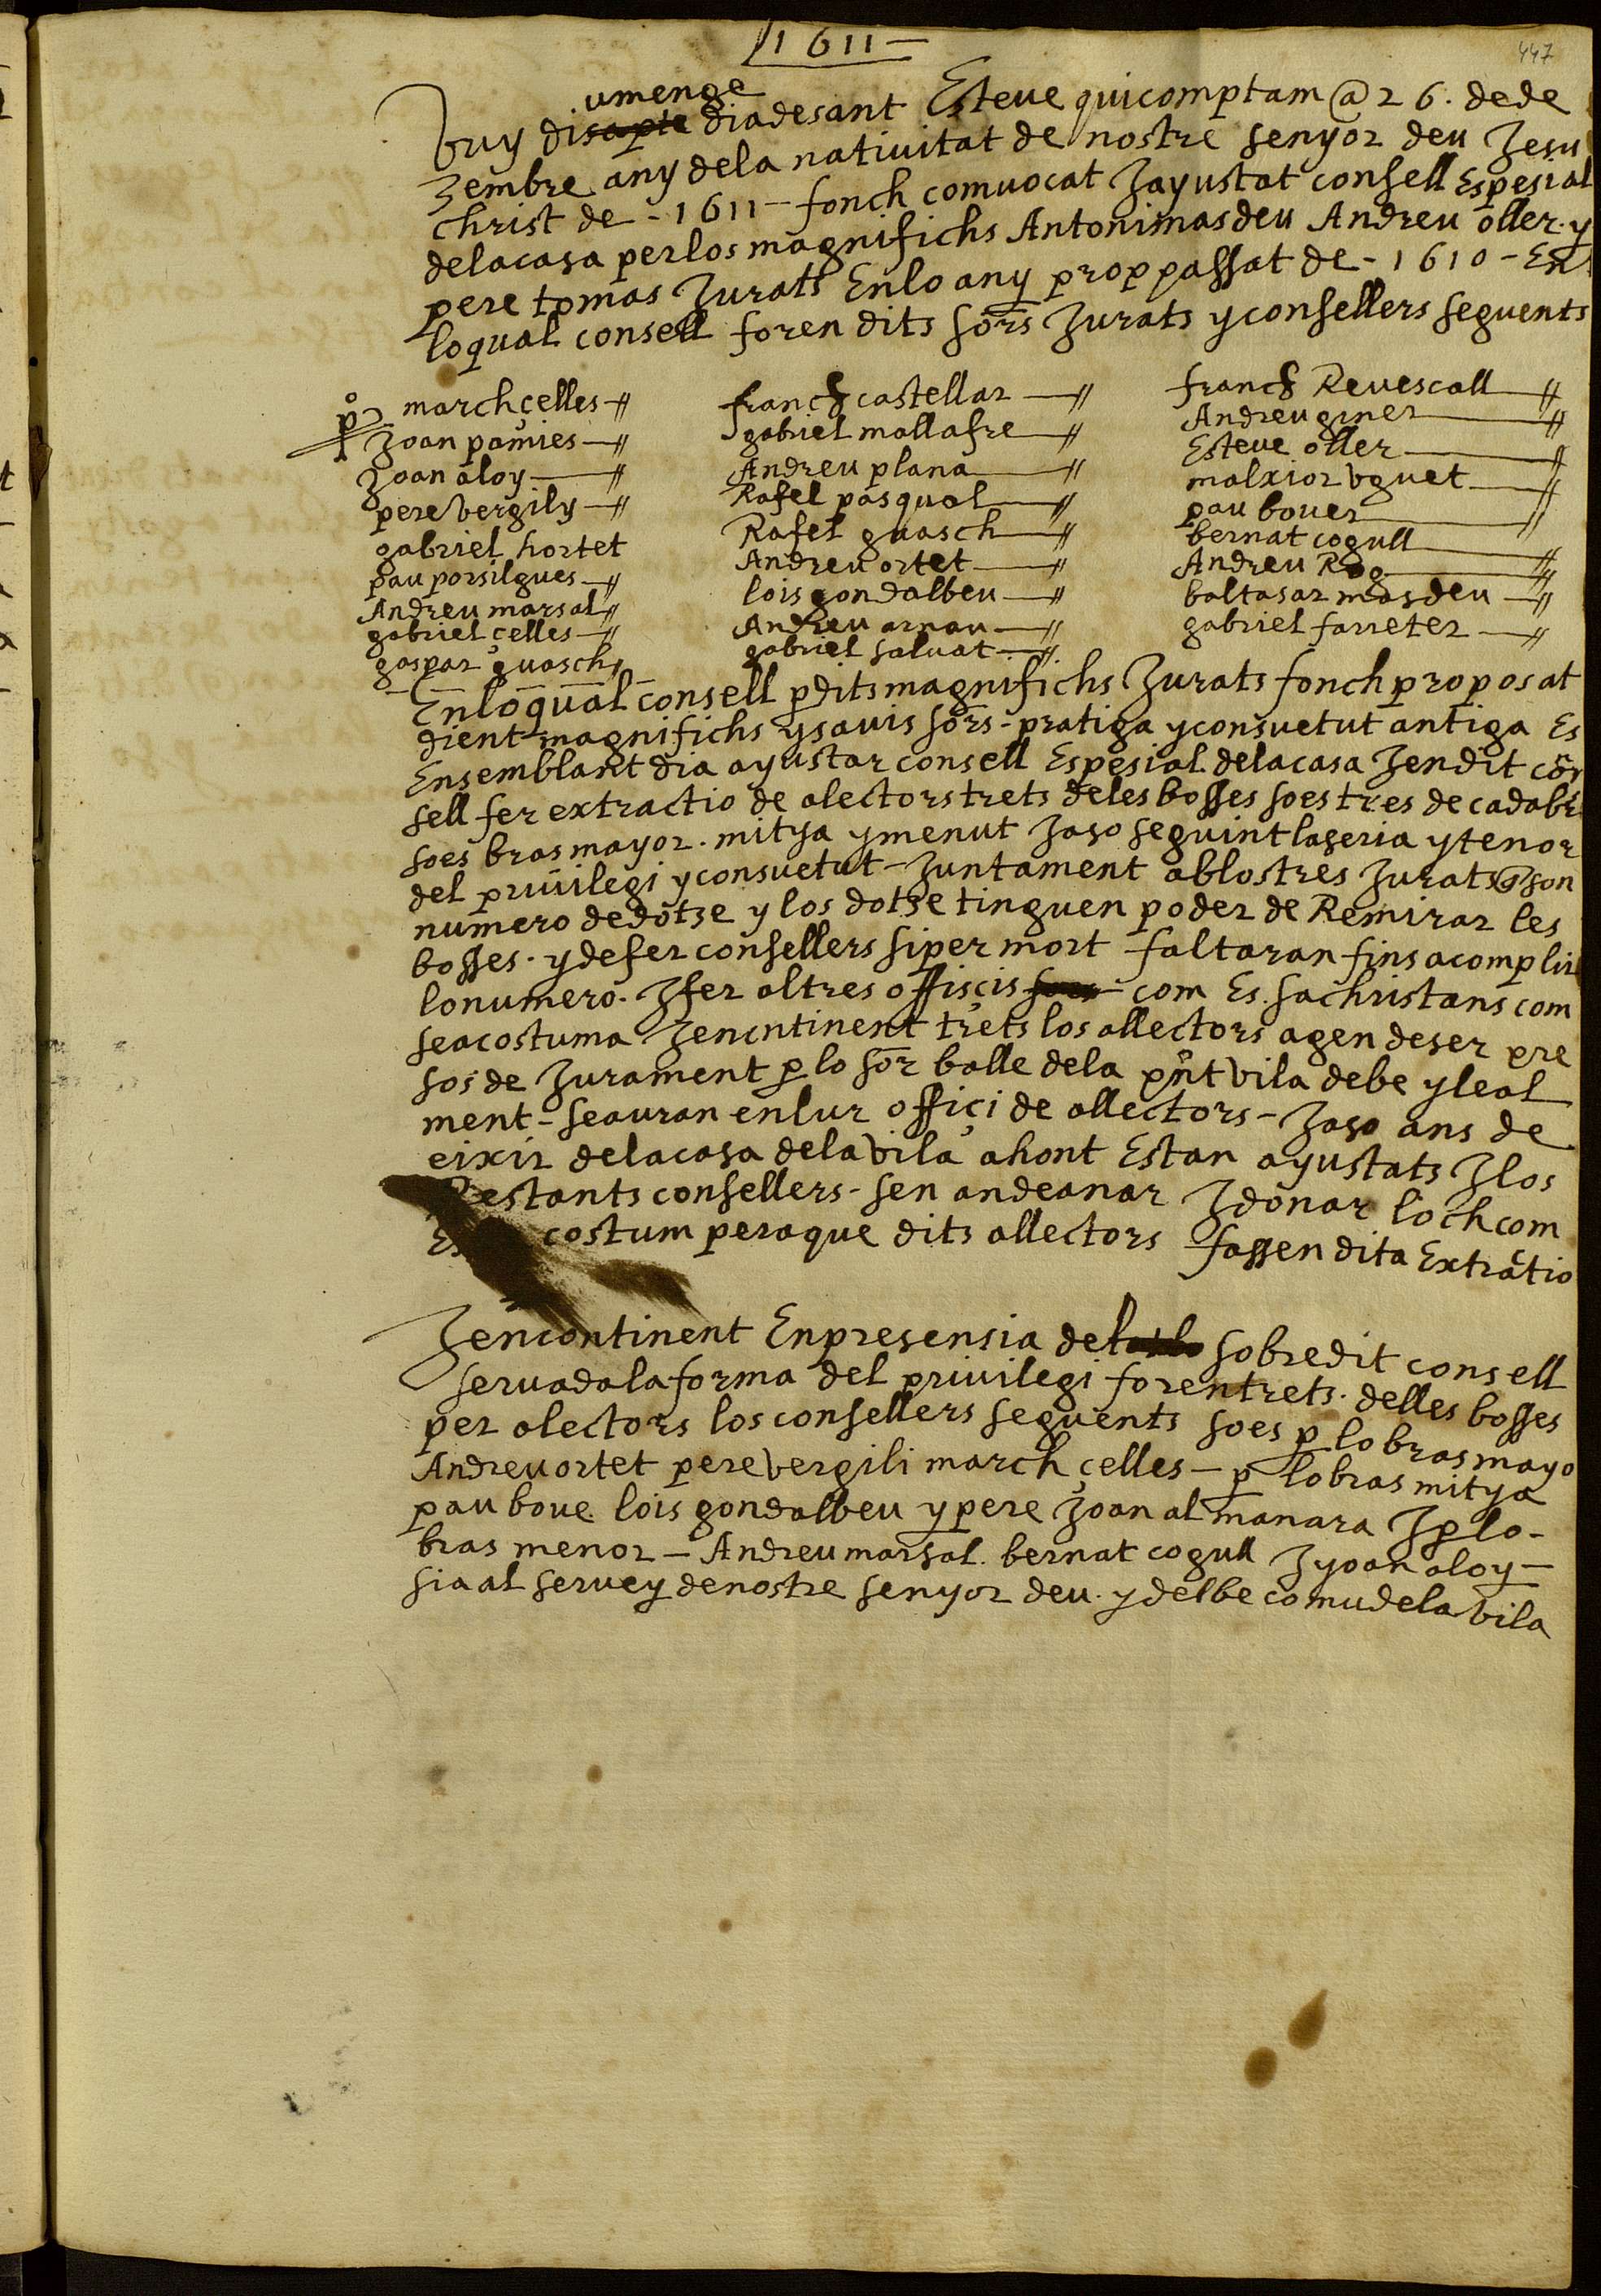 1611
447
umenge
vuy disapte diadesant Esteue quicomptam @ 26. dede
zembre any dela natiuitat de nostre senyor deu Jesu
christ de - 1611 - fonch comuocat Jayustat consell Espesial
delacasa perlos magnifichs Antonimasdeu Andreu oller. y
pere tomas Jurats Enlo any prop passat de - 1610 - En
loqual consell foren dits sors Jurats yconsellers seguents
po marchçelles
Joan pamies
Joan aloy
pere vergily
gabriel hortet
pau porsilgues
Andreu marsal
gabriel çelles
gaspar guasch
franch castellar
gabriel mallafre
Andreu plana
Rafel pasqual
Rafel guasch
Andreu ortet
lois gondalbeu
Andreu arnau
gabriel saluat
franch Reuescall
Andreu giner
Esteue oller
malxior vguet
pau bouer
bernat cogull
Andreu Rog
baltasar masdeu
gabriel farreter
Enloqual consell p dits magnifichs Jurats fonch proposat
dient magnifichs ysauis sors - pratiga yconsuetut antiga Es
Ensemblant dia ayustar consell Espesial delacasa Jendit con
sell fer extractio de alectors trets deles bosses soes tres de cadabras
soes bras mayor. mitya ymenut Jaso seguint laseria ytenor
del priuilegi yconsuetut - Juntament ablostres Jurats q son
numero dedotse y los dotse tinguen poder de Remirar les
bosses. ydefer consellers siper mort faltaran fins acomplir
lonumero. Jfer altres offiscis soes com Es. sachristans com
seacostuma Jenentinent trets los allectors agen deser pre
sos de Jurament p lo sor balle dela pnt vila debe yleal
ment - seauran enlur offiçi de allectors - Jaso ans de
eixir delacasa dela vila ahont Estan ayustats Jlos
Restants consellers - sen andeanar Jdonar loch com
Es costum peraque dits allectors fassen dita Extratio
Jencontinent Enpresensia del sobredit consell
seruadalaforma del priuilegi forentrets. delles bosses
per alectors los consellers seguents soes p lo bras mayo
Andreu ortet pere vergili march çelles - p lobras mitya
pau boue lois gondalbeu ypere Joan almanara Jp lo -
bras menor - Andreu marsal. bernat cogull Jyoan aloy -
siaal seruey denostre senyor deu. ydelbe comudela vila